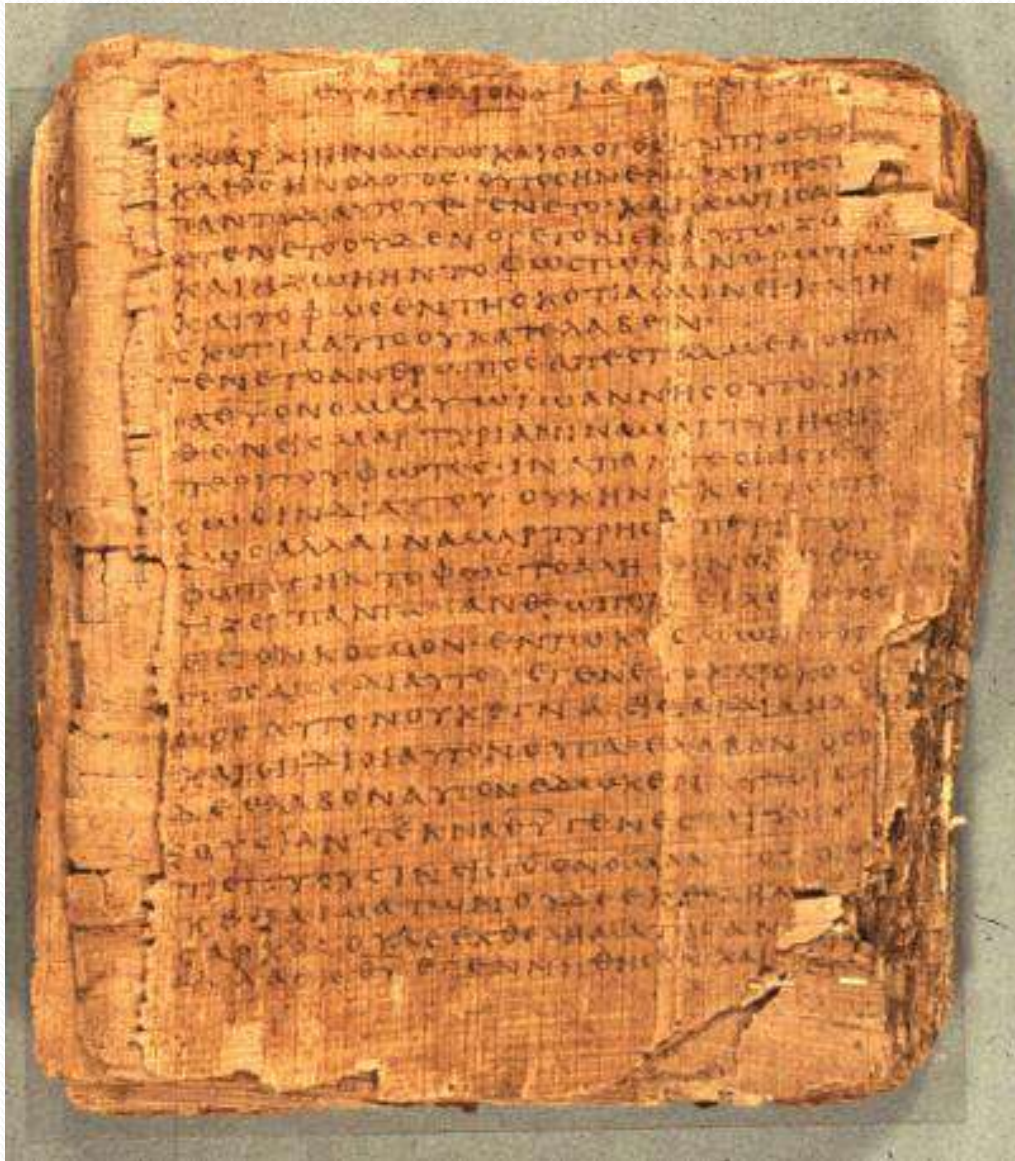 ΕΥΑΓΓΕΛΙΟΝ ΚΑΤΑ
ΕΝ ΑΡΧΗ ΗΝ Ο ΛΟΓΟϹ ΚΑΙ Ο ΛΟΓΟϹ ΗΝ ΠΡΟϹ ΤΟ
ΚΑΙ ΘϹ ΗΝ Ο ΛΟΓΟϹ· ΟΥΤΟϹ ΗΝ ΕΝ ΑΡΧΗ ΠΡΟϹ
ΠΑΝΤΑ ΔΙ ΑΥΤΟΥ ΕΓΕΝΕΤΟ ΚΑΙ ΧΩΡΙϹ
ΕΓΕΝΕΤΟ ΟΥΔΕΝ Ο ΓΕΓΟΝΕΝ ΕΝ ΑΥΤΩ ΖΩ
ΚΑΙ Η ΖΩΗ ΗΝ ΤΟ ΦΩϹ ΤΩΝ ΑΝΘΡΩΠΩ
ΚΑΙ ΤΟ ΦΩϹ ΕΝ ΤΗ ϹΚΟΤΙΑ ΦΑΙΝΕΙ ΚΑΙ Η
ϹΚΟΤΙΑ ΑΥΤΟ ΟΥ ΚΑΤΕΛΑΒΕΝ·
ΕΓΕΝΕΤΟ ΑΝΘΡΩΠΟϹ ΑΠΕϹΤΑΛΜΕΝΟϹ ΠΑ
ΡΑ ΘΥ ΟΝΟΜΑ ΑΥΤΩ ΙΩΑΝΝΗϹ ΟΥΤΟϹ ΗΛ
ΘΕΝ ΕΙϹ ΜΑΡΤΥΡΙΑΝ ΙΝΑ ΜΑΡΤΥΡΗϹΗ
ΠΕΡΙ ΤΟΥ ΦΩΤΟϹ· ΙΝΑ ΠΑΝΤΕϹ ΠΙϹΤΕΥ
ϹΩϹΙΝ ΔΙ ΑΥΤΟΥ· ΟΥΚ ΗΝ ΕΚΕΙΝΟϹ ΤΟ
ΦΩϹ ΑΛΛΑ ΙΝΑ ΜΑΡΤΥΡΗϹΗ ΠΕΡΙ ΤΟΥ
ΦΩΤΟϹ ΗΝ ΤΟ ΦΩϹ ΤΟ ΑΛΗΘΙΝΟΝ Ο ΦΩ
ΤΙΖΕΙ ΠΑΝΤΑ ΑΝΘΡΩΠΟΝ ΕΡΧΟΜΕΝΟΝ
ΕΙϹ ΤΟΝ ΚΟϹΜΟΝ· ΕΝ ΤΩ ΚΟϹΜΩ ΗΝ ΚΑΙ Ο
ΚΟϹΜΟϹ ΔΙ ΑΥΤΟΥ ΕΓΕΝΕΤΟ ΚΑΙ Ο ΚΟϹ
ΜΟϹ ΑΥΤΟΝ ΟΥΚ ΕΓΝΩ ΕΙϹ ΤΑ ΙΔΙΑ ΗΛΘΕ
ΚΑΙ ΟΙ ΙΔΙΟΙ ΑΥΤΟΝ ΟΥ ΠΑΡΕΛΑΒΟΝ ΟϹΟΙ
ΔΕ ΕΛΑΒΟΝ ΑΥΤΟΝ ΕΔΩΚΕΝ ΑΥΤΟΙϹ ΕΞ
ΟΥϹΙΑΝ ΤΕΚΝΑ ΘΥ ΓΕΝΕϹΘΑΙ ΤΟΙϹ
ΠΙϹΤΕΥΟΥϹΙΝ ΕΙϹ ΤΟ ΟΝΟΜΑ ΑΥΤΟΥ
ΕΞ ΑΙΜΑΤΩΝ ΟΥΔΕ ΕΚ ΘΕΛΗΜΑ
ϹΑΡΚΟϹ ΟΥΔΕ ΕΚ ΘΕΛΗΜΑΤΟϹ ΑΝ
ΕΚ ΘΥ ΕΓΕΝΝΗΘΗϹΑΝ ΚΑΙ